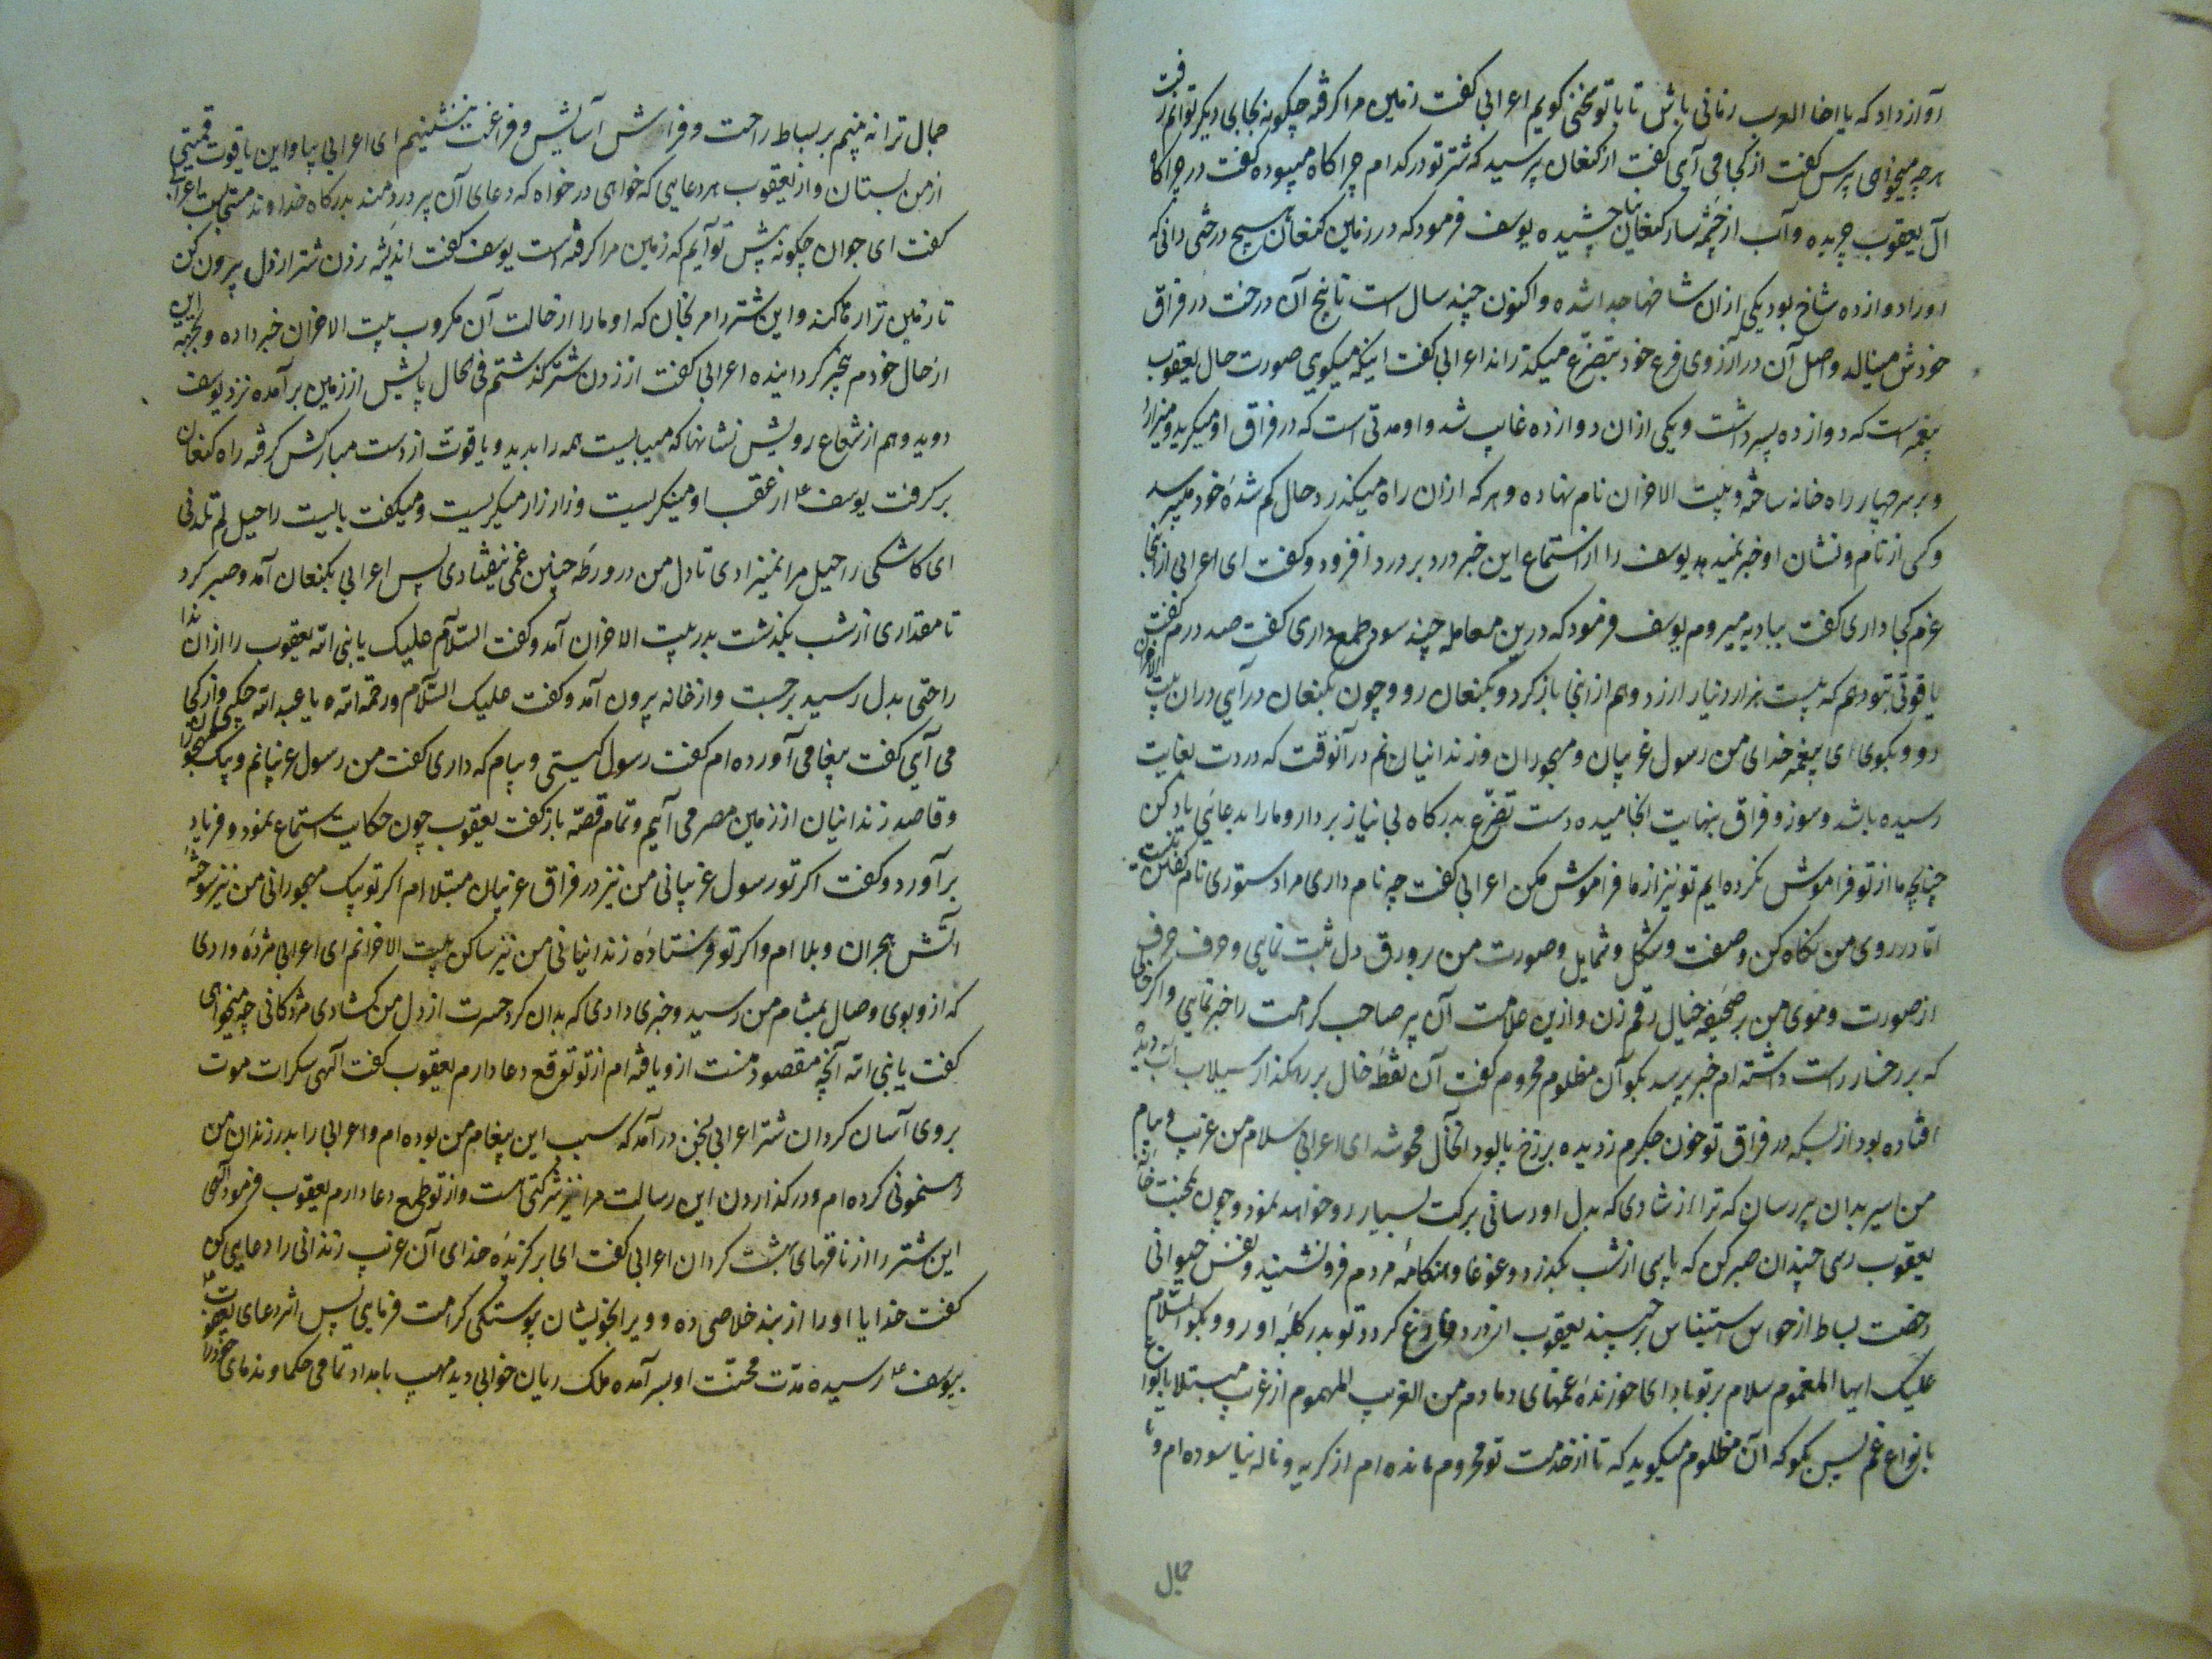 آواز داد که یا اخا العرب زمانی باش تا با تو سخنی کویم اعرابی کفت زمین مرا کرفته چکونه بجایی دیکر توانم رفت
هر چه میخواهی پرس کفت از کجا می آیی کفت از کنعان پرسید که شتر تو در کدام چراکاه میبوده کفت در چراکاه
آل یعقوب چریده و آب از چشمه سار کنعانیان چشیده یوسف فرمود که در زمین کنعان هیچ درختی دانی که
او را دوازده شاخ بود یکی از ان شاخها جدا شده و اکنون چند سال است تا بیخ آن درخت در فراق
خودش مینالد و اصل آن در آرزوی فرع خود بتضرع میکذراند اعرابی کفت اینکه میکویی صورت حال یعقوب
پیغمبر است که دوازده پسر داشت و یکی از ان دوازده غایب شد و او مدتی است که در فراق او میکرید و میزارد
و بر سر چهار راه خانه ساخته و بیت الاحزان نام نهاده و هر که ازان راه میکذرد حال کم شدهٔ خود میپرسد
و کسی از نام و نشان او خبر نمیدهد یوسف را از استماع این خبر درد بر درد افزود و کفت ای اعرابی از اینجا
عزم کجا داری کفت ببادیه میروم یوسف فرمود که درین معامله چند سود طمع داری کفت صد درم کفت
یاقوتی بتو دهم که بیست هزار دینار ارزد و هم از اینجا باز کرد و بکنعان رو و چون بکنعان درآیی در ان بیت الاحزان
رو و بکوی ای پیغمبر خدای من رسول غریبان و مهجوران و زندانیانم در آنوقت که دردت بغایت
رسیده باشد و سوز و فراق بنهایت انجامیده دست تضرع بدرکاه بی نیاز بردار و ما را بدعایی یاد کن
چنانچه ما از تو فراموش نکرده ایم تو نیز از ما فراموش مکن اعرابی کفت چه نام داری مرا دستوری نام کفتن نیست
اما در روی من نکاه کن و صفت و شکل و شمایل و صورت من بر ورق دل ثبت نمایی و حرف حرف
از صورت و موی من بر صحیفهٔ خیال رقم زن و ازین علامت آن پیر صاحب کرامت را خبر نمایی و اکر خالی
که بر رخسار راست داشته ام خبر پرسد بکو آن مظلوم محروم کفت آن نقطهٔ خال بر رهکذار سیلاب آب دیده
افتاده بود از بسکه در فراق تو خون جکرم ز دیده بر رخ پالود آنخال محو شد ای اعرابی سلام من غریب و پیام
من اسیر بدان پیر رسان که ترا از شادی که بدل او رسانی برکت بسیار رو خواهد نمود و چون بمحنت خانهٔ
یعقوب رسی چندان صبر کن که پاسی از شب بکذرد و غوغا و هنکامهٔ مردم فرو نشیند و نفس حیوانی
رخت بساط از حواس استیناس برچیند یعقوب از ورد فارغ کردد تو بدر کلبهٔ او رو و بکو السلام
علیک ایها المغموم سلام بر تو باد ای خورندهٔ غمهای دمادم من الغریب المهموم از غریب مبتلا بانواع
بانواع غم پس بکو که آن مظلوم میکوید که تا از خدمت تو محروم مانده ام از کریه و ناله نیاسوده ام و تا
جمال
جمال ترا نه بینم بر بساط راحت و فراش آسایش و فراغت ننشینم ای اعرابی بیا و این یاقوت قیمتی
از من بستان و از یعقوب هر دعایی که خواهی در خواه که دعای آن پیر دردمند بدرکاه خداوند مستجابست اعرابی
کفت ای جوان چکونه پیش تو آیم که زمین مرا کرفته است یوسف کفت اندیشه زدن شتر از دل بیرون کن
تا زمین ترا رها کند و این شتر را مرنجان که او ما را از حالت آن مکروب بیت الاحزان خبر داده و بجهة این
از حال خودم بیخبر کردانیده اعرابی کفت از زدن شتر کذشتم فی الحال پایش از زمین برآمده نزد یوسف
دوید و هم از شعاع رویش نشانها که میبایست همه را بدید و یاقوت از دست مبارکش کرفته راه کنعان
بر کرفت یوسف ع از عقب او مینکریست و زار زار میکریست و میکفت یا لیت راحیل لم تلدنی
ای کاشکی راحیل مرا نمیزادی تا دل من در ورطهٔ چنین غمی نیفتادی پس اعرابی بکنعان آمد و صبر کرد
تا مقداری از شب بکذشت بدر بیت الاحزان آمد و کفت السلام علیک یا نبی الله یعقوب را از ان ندا
راحتی بدل رسید برجست و از خانه بیرون آمد و کفت علیک السلام و رحمة الله یا عبد الله چه کسی و از کجا
می آیی کفت پیغامی آورده ام کفت رسول کیستی و پیام که داری کفت من رسول غریبانم و پیک مهجوران
و قاصد زندانیان از زمین مصر می آیم و تمام قصه باز کفت یعقوب چون حکایت استماع نمود و فریاد
برآورد و کفت اکر تو رسول غریبانی من نیز در فراق غریبان مبتلا ام اکر تو پیک مهجورانی من نیز سوختهٔ
آتش هجران و بلا ام و اکر تو فرستادهٔ زندانیانی من نیز ساکن بیت الاحزانم ای اعرابی مژده دادی
که از و بوی وصال بمشام من رسید و خبری دادی که بدان کرد حسرت از دل من کشادی مژدکانی چه میخواهی
کفت یا نبی الله آنچه مقصود منست از و یافته ام از تو توقع دعا دارم یعقوب کفت الهی سکرات موت
بروی آسان کردان شتر اعرابی بسخن درآمد که سبب این پیغام من بوده ام و اعرابی را بدر زندان من
رهنمونی کرده ام و در کذاردن این رسالت مرا نیز شرکتی هست و از تو طمع دعا دارم یعقوب فرمود الهی
این شتر را از ناقهای بهشت کردان اعرابی کفت ای برکزیدهٔ خدای آن غریب زندانی را دعایی کن
کفت خدایا او را از بند خلاصی ده و ویرا بخویشان پیوستکی کرامت فرمایی پس اثر دعای یعقوب ع
بیوسف ع رسیده مدت محنت او بسر آمده ملک ریان خوابی دید مهیب بامداد تمامی حکما و ندمای خود را